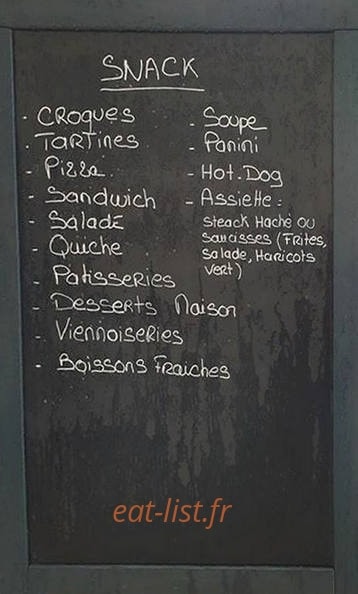 SNACK
- CROQUES
- TARTINES
- Pizza
- Sandwich
- Salade
- Quiche
- Patisseries
- Desserts Maison
- Viennoiseries
- Boissons Fraiches
- Soupe
- Panini
- Hot.Dog
- Assiette :
Steack Haché OU
Saucisses (Frites,
Salade, Haricots
Vert)
eat-list.fr